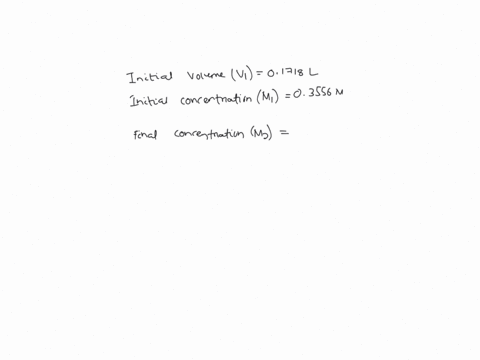 Initial Volume (V1) = 0.1718 L
Initial concentration (M1) = 0.3556 M
Final concentration (M2) =